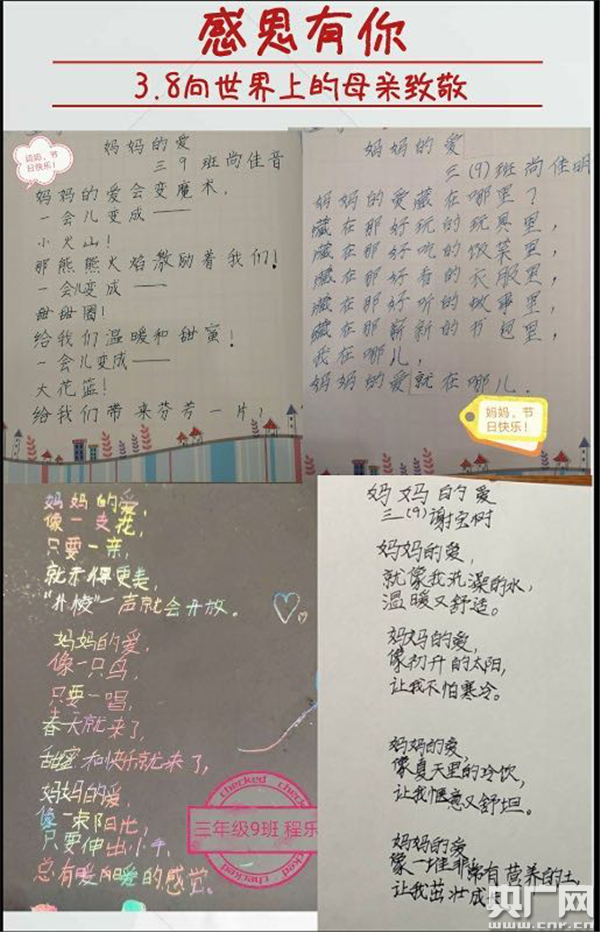 感恩有你
3.8向世界上的母亲致敬
妈妈，节
日快乐！
妈妈的爱
三9班尚佳音
妈妈的爱会变魔术，
一会儿变成——
小火山！
那熊熊火焰激励着我们！
一会儿变成——
甜甜圈！
给我们温暖和甜蜜！
一会儿变成——
大花篮！
给我们带来芬芳一片！
妈妈的爱
三(9)班尚佳明
妈妈的爱藏在哪里？
藏在那好玩的玩具里，
藏在那好吃的饭菜里，
藏在那好看的衣服里，
藏在那好听的故事里，
藏在那崭新的书包里，
我在哪儿，
妈妈的爱就在哪儿.
妈妈，节
日快乐！
妈妈的爱，
像一支花，
只要一亲，
就开得更美，
“扑棱”一声就会开放。
妈妈的爱，
像一只鸟，
只要一唱，
春天就来了，
甜蜜和快乐就来了，
妈妈的爱，
像一束阳光，
只要伸出小手，
总有暖阳阳爱的感觉。
checked
三年级9班 程乐
checked
妈妈的爱
三(9)谢宝树
妈妈的爱，
就像我洗澡的水，
温暖又舒适。
妈妈的爱，
像初升的太阳，
让我不怕寒冷。
妈妈的爱，
像夏天里的冷饮，
让我惬意又舒坦。
妈妈的爱
像一堆非常有营养的土，
让我茁壮成长
央广网
www.cnr.cn